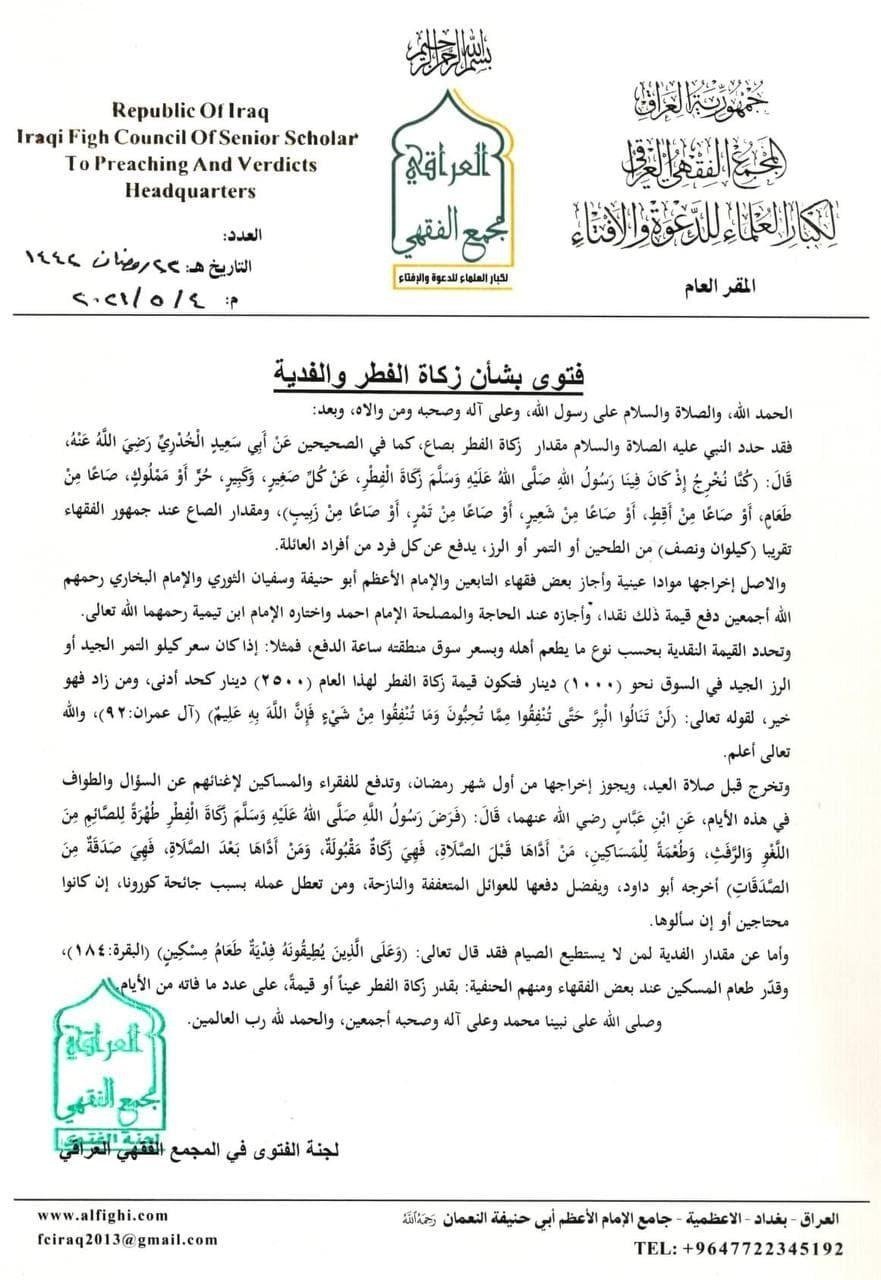 بسم الله الرحمن الرحيم
جمهورية العراق
المجمع الفقهي العراقي
لكبار العلماء للدعوة والافتاء
المقر العام
العراقي
مجمع الفقهي
لكبار العلماء للدعوة والإفتاء
Republic Of Iraq
Iraqi Figh Council Of Senior Scholar
To Preaching And Verdicts
Headquarters
العدد:
التاريخ هـ: ٢٢ رمضان ١٤٤٢
م: ٤ / ٥ / ٢٠٢١
فتوى بشأن زكاة الفطر والفدية
الحمد الله، والصلاة والسلام على رسول الله، وعلى آله وصحبه ومن والاه، وبعد:
فقد حدد النبي عليه الصلاة والسلام مقدار زكاة الفطر بصاع، كما في الصحيحين عَنْ أَبِي سَعِيدٍ الْخُدْرِيِّ رَضِيَ اللَّهُ عَنْهُ،
قَالَ: (كُنَّا نُخْرِجُ إِذْ كَانَ فِينَا رَسُولُ اللهِ صَلَّى اللهُ عَلَيْهِ وَسَلَّمَ زَكَاةَ الْفِطْرِ، عَنْ كُلِّ صَغِيرٍ، وَكَبِيرٍ، حُرٍّ أَوْ مَمْلُوكٍ، صَاعًا مِنْ
طَعَامٍ، أَوْ صَاعًا مِنْ أَقِطٍ، أَوْ صَاعًا مِنْ شَعِيرٍ، أَوْ صَاعًا مِنْ تَمْرٍ، أَوْ صَاعًا مِنْ زَبِيبٍ)، ومقدار الصاع عند جمهور الفقهاء
تقريبا (كيلوان ونصف) من الطحين أو التمر أو الرز، يدفع عن كل فرد من أفراد العائلة.
والاصل إخراجها موادا عينية وأجاز بعض فقهاء التابعين والإمام الأعظم أبو حنيفة وسفيان الثوري والإمام البخاري رحمهم
الله أجمعين دفع قيمة ذلك نقدا، وأجازه عند الحاجة والمصلحة الإمام احمد واختاره الإمام ابن تيمية رحمهما الله تعالى.
وتحدد القيمة النقدية بحسب نوع ما يطعم أهله وبسعر سوق منطقته ساعة الدفع، فمثلا: إذا كان سعر كيلو التمر الجيد أو
الرز الجيد في السوق نحو (١٠٠٠) دينار فتكون قيمة زكاة الفطر لهذا العام (٢٥٠٠) دينار كحد أدنى، ومن زاد فهو
خير، لقوله تعالى: (لَنْ تَنَالُوا الْبِرَّ حَتَّى تُنْفِقُوا مِمَّا تُحِبُّونَ وَمَا تُنْفِقُوا مِنْ شَيْءٍ فَإِنَّ اللَّهَ بِهِ عَلِيمٌ) (آل عمران:٩٢)، والله
تعالى أعلم.
وتخرج قبل صلاة العيد، ويجوز إخراجها من أول شهر رمضان، وتدفع للفقراء والمساكين لإغنائهم عن السؤال والطواف
في هذه الأيام، عَنِ ابْنِ عَبَّاسٍ رضي الله عنهما، قَالَ: (فَرَضَ رَسُولُ اللَّهِ صَلَّى اللهُ عَلَيْهِ وَسَلَّمَ زَكَاةَ الْفِطْرِ طُهْرَةً لِلصَّائِمِ مِنَ
اللَّغْوِ وَالرَّفَثِ، وَطُعْمَةً لِلْمَسَاكِينِ، مَنْ أَدَّاهَا قَبْلَ الصَّلَاةِ، فَهِيَ زَكَاةٌ مَقْبُولَةٌ، وَمَنْ أَدَّاهَا بَعْدَ الصَّلَاةِ، فَهِيَ صَدَقَةٌ مِنَ
الصَّدَقَاتِ) أخرجه أبو داود، ويفضل دفعها للعوائل المتعففة والنازحة، ومن تعطل عمله بسبب جائحة كورونا، إن كانوا
محتاجين أو إن سألوها.
وأما عن مقدار الفدية لمن لا يستطيع الصيام فقد قال تعالى: (وَعَلَى الَّذِينَ يُطِيقُونَهُ فِدْيَةٌ طَعَامُ مِسْكِينٍ) (البقرة:١٨٤)،
وقدّر طعام المسكين عند بعض الفقهاء ومنهم الحنفية: بقدر زكاة الفطر عيناً أو قيمةً، على عدد ما فاته من الأيام.
وصلى الله على نبينا محمد وعلى آله وصحبه أجمعين، والحمد لله رب العالمين.
العراقي
مجمع الفقهي
لجنة الفتوى
لجنة الفتوى في المجمع الفقهي العراقي
العراق - بغداد - الاعظمية - جامع الإمام الأعظم أبي حنيفة النعمان رَحِمَهُ اللَّهُ
TEL: +9647722345192
www.alfighi.com
fciraq2013@gmail.com